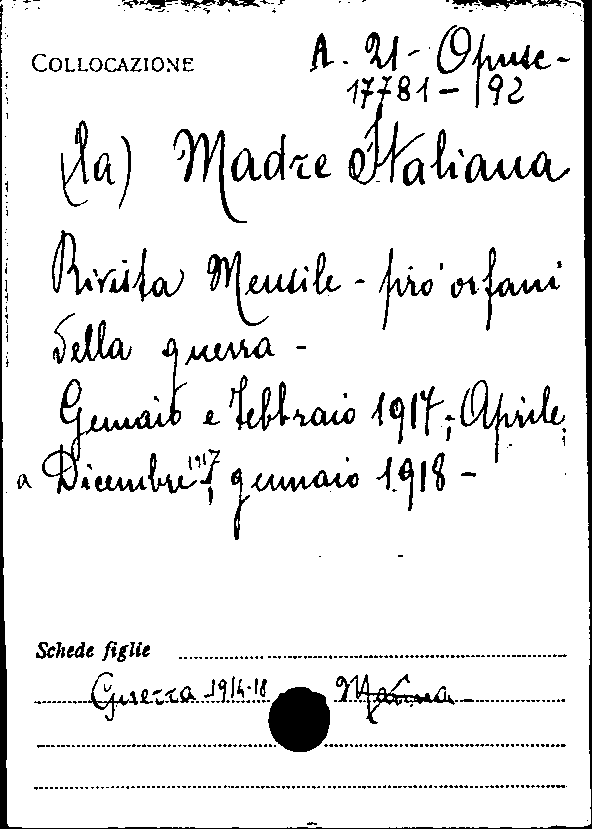 COLLOCAZIONE
A. 21 - Opusc -
17781 - 192
(la) Madre Italiana
Rivista Mensile - pro' orfani
della guerra -
Gennaio e Febbraio 1917; Aprile
a Dicembre 1917; gennaio 1918 -
Schede figlie
Guerra 1914-18 -